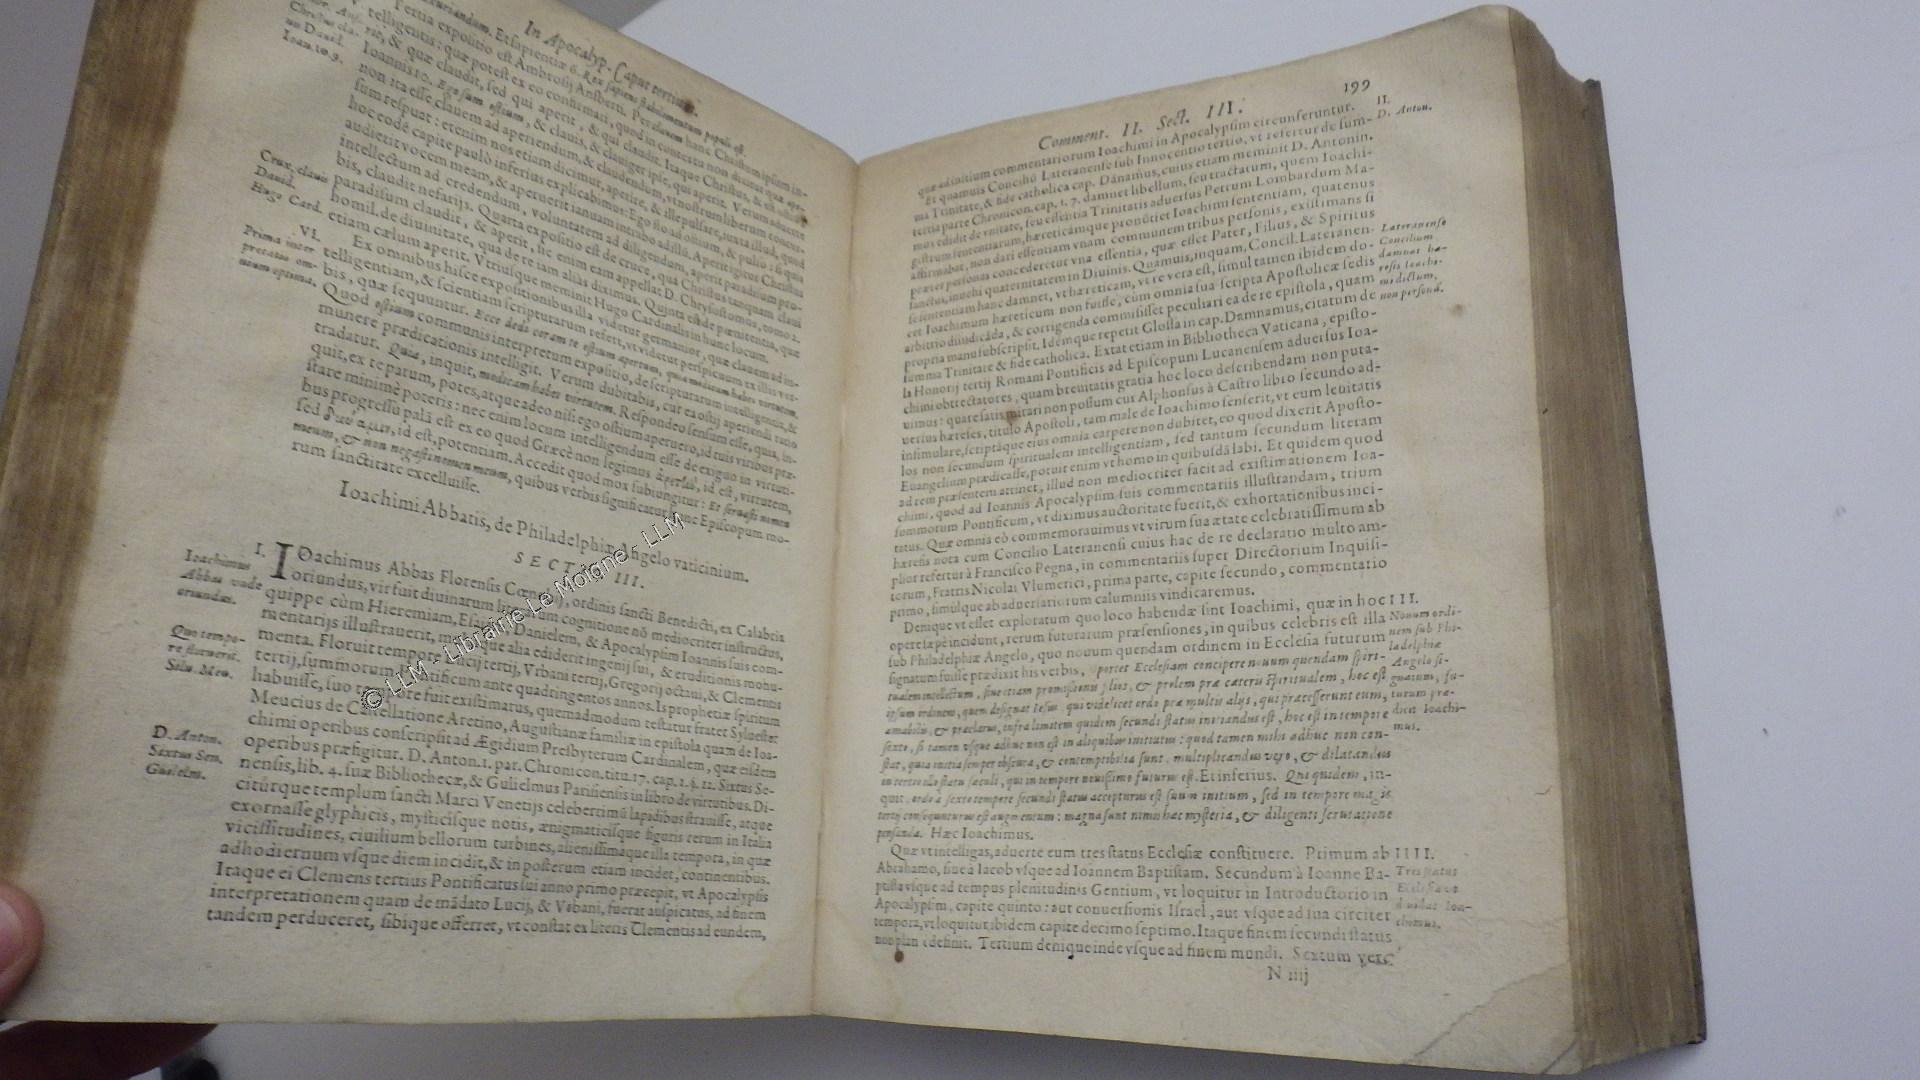 In Apocalyp. Caput tertium.
Tertia expositio est Ambrosij Ansberti. Per clauem hanc Christum ipsum in-
Ioannis 10. Ego sum ostium, & clauis, & clauiger ipse, qui aperit. Verum aduerte
non ita esse clauem ad aperiendum, & claudendum, vt nostrum liberum conten-
sum respuat: etenim nos etiam dicimur, aperire, & ille pulsare, iuxta illud, quod
hoc eodē capite paulò inferius explicabimus: Ego sto ad ostium, & pulso: si quis
audierit vocem meam, & aperuerit ianuam intrabo ad illū. Aperit igitur Christus
intellectum ad credendum, voluntatem ad diligendum, aperit paradisum pro-
bis, claudit nefarijs. Quarta expositio est de cruce, qua Christus tanquam claui
paradisum claudit, & aperit, sic enim eam appellat D. Chrysostomus, tomo 2.
homil. de diuinitate, qua de re iam aliàs diximus. Quinta est de pœnitentia, quæ
etiam cælum aperit. Vtriusque meminit Hugo Cardinalis in hunc locum.
Ioan. 10. 9.
Crux, clauis
Dauid.
Hugo Card.
VI.
Prima inter-
pretatio om-
nium optima.
Ex omnibus hisce expositionibus illa videtur germanior, quæ clauem ad in-
telligentiam, & scientiam scripturarum refert, vt videtur perspicuum ex illis ver-
bis, quæ sequuntur. Ecce dedi coram te ostium apertum, quia modicam habes virtutem.
Quod ostium communis interpretum expositio, de scripturarum intelligentia, &
munere prædicationis intelligit. Verum dubitabis, cur ea ostij aperiendi ratio
tradatur. Quia, inquit, modicam habes virtutem. Respondeo sensum esse, quia, in-
quit, ex te parum, potes, atque adeo nisi ego ostium aperuero, id tuis viribus præ-
stare minimè poteris: nec enim locum intelligendum esse de exiguo in virtuti-
bus progressu palā est ex eo quod Græcè non legimus ἀρετὴν, id est, virtutem,
sed δύναμιν, id est, potentiam. Accedit quod mox subiungitur: Et seruasti nomen
meum, & non negasti nomen meum, quibus verbis significatur, hunc Episcopum mo-
rum sanctitate excelluisse.
Ioachimi Abbatis, de Philadelphiæ Angelo vaticinium.
SECTIO III.
I.
Ioachimus
Abbas unde
oriundus.
IOachimus Abbas Florensis Cœnobij, ordinis sancti Benedicti, ex Calabria
oriundus, vir fuit diuinarum literarum cognitione nō mediocriter instructus,
quippe cùm Hieremiam, Esaiam, Danielem, & Apocalypsim Ioannis suis com-
mentarijs illustrauerit, multaque alia ediderit ingenij sui, & eruditionis monu-
menta. Floruit tempore Lucij tertij, Vrbani tertij, Gregorij octaui, & Clementis
tertij, summorum Pontificum ante quadringentos annos. Is prophetiæ spiritum
habuisse, suo tempore fuit existimatus, quemadmodum testatur frater Syluester
Meucius de Castellatione Aretino, Augustianæ familiæ in epistola quam de Ioa-
chimi operibus conscripsit ad Ægidium Presbyterum Cardinalem, quæ eisdem
operibus præfigitur. D. Anton. 1. par. Chronicon. titu. 17. cap. 1. §. 12. Sixtus Se-
nensis, lib. 4. suæ Bibliothecæ, & Gulielmus Parisiensis in libro de virtutibus. Di-
citúrque templum sancti Marci Venetijs celeberrimū lapidibus strauisse, atque
exornasse glyphicis, mysticisque notis, ænigmaticisque figuris rerum in Italia
vicissitudines, ciuilium bellorum turbines, alienissimáque illa tempora, in quæ
ad hodiernum vsque diem incidit, & in posterum etiam incidet, continentibus.
Itaque ei Clemens tertius Pontificatus sui anno primo præcepit, vt Apocalypsis
interpretationem quam de mādato Lucij, & Vrbani, fuerat auspicatus, ad finem
tandem perduceret, sibique offerret, vt constat ex literis Clementis ad eundem,
Quo tempo-
re floruerit.
Selu. Meu.
D. Anton.
Sixtus Sen.
Gulielm.
Comment. II. Sect. III. 199
quæ ad initium commentariorum Ioachimi in Apocalypsim circunferuntur.
Et quamuis Conciliū Lateranense sub Innocentio tertio, vt refertur de sum-
ma Trinitate, & fide catholica cap. Dánamus, cuius etiam meminit D. Antonin.
tertia parte Chronicon. cap. 1. 7. damnet libellum, seu tractatum, quem Ioachi-
mus edidit de vnitate, seu essentia Trinitatis aduersus Petrum Lombardum Ma-
gistrum sententiarum, hæreticámque pronūtiet Ioachimi sententiam, quatenus
affirmabat, non dari essentiam vnam communem tribus personis, existimans si
præter personas concederetur vna essentia, quæ esset Pater, Filius, & Spiritus
sanctus, inuehi quaternitatem in Diuinis. Quamuis, inquam, Concil. Lateranen-
se sententiam hanc damnet, vt hæreticam, vt re vera est, simul tamen ibidem do-
cet Ioachimum hæreticum non fuisse, cùm omnia sua scripta Apostolicæ sedis
arbitrio diiudicāda, & corrigenda commisisset peculiari ea de re epistola, quam
propria manu subscripsit. Idémque repetit Glossa in cap. Damnamus, citatum de
summa Trinitate & fide catholica. Extat etiam in Bibliotheca Vaticana, episto-
la Honorij tertij Romani Pontificis ad Episcopum Lucanensem aduersus Ioa-
chimi obtrectatores, quam breuitatis gratia hoc loco describendam non puta-
uimus: quare satis mirari non possum cur Alphonsus à Castro libro secundo ad-
uersus hæreses, titulo Apostoli, tam male de Ioachimo senserit, vt eum leuitatis
insimulare, scriptáque eius omnia carpere non dubitet, eo quod dixerit Aposto-
los non secundum spiritualem intelligentiam, sed tantum secundum literam
Euangelium prædicasse, potuit enim vt homo in quibusdā labi. Et quidem quod
ad rem præsentem attinet, illud non mediocriter facit ad existimationem Ioa-
chimi, quod ad Ioannis Apocalypsim suis commentariis illustrandam, trium
summorum Pontificum, vt diximus auctoritate fuerit, & exhortationibus inci-
tatus. Quæ omnia eò commemorauimus vt virum sua ætate celebratissimum ab
hæresis nota cum Concilio Lateranensi cuius hac de re declaratio multo am-
plior refertur à Francisco Pegna, in commentariis super Directorium Inquisi-
torum, Fratris Nicolai Vlumerici, prima parte, capite secundo, commentario
primo, simúlque ab aduersariorum calumniis vindicaremus.
II.
D. Anton.
Lateranense
Concilium
damnat hæ-
resis Ioachi-
mi dictum,
non personā.
Denique vt esset exploratum quo loco habendæ sint Ioachimi, quæ in hoc
opere sæpe incidunt, rerum futurarum præsensiones, in quibus celebris est illa
sub Philadelphiæ Angelo, quo nouum quendam ordinem in Ecclesia futurum
signatum fuisse prædixit his verbis, oportet Ecclesiam concipere nouum quendam spiri-
tualem intellectum, siue etiam promissionis filios, & prolem præ cæteris spiritualem, hoc est
ipsum ordinem, quem designat Iesus, qui videlicet ordo præ multis alijs, qui præcesserunt eum,
amabilis, & præclarus, infra limitem quidem secundi status iniciandus est, hoc est in tempore
sexto, si tamen vsque adhuc non est in aliquibus initiatus: quod tamen mihi adhuc non con-
stat, quia initia semper obscura, & contemptibilia sunt, multiplicandus vero, & dilatandus
in tertio illo statu sæculi, qui in tempore nouissimo futurus est. Et inferius. Qui quidem, in-
quit, ordo à sexto tempore secundi status accepturus est suum initium, sed in tempore magis
tertij consequuturus est augmentum: magna sunt nimis hæc mysteria, & diligenti scrutatione
pensanda. Hæc Ioachimus.
III.
Nouum ordi-
nem sub Phi-
ladelphiæ
Angelo si-
gnatum, fu-
turum præ-
dicit Ioachi-
mus.
Quæ vt intelligas, aduerte eum tres status Ecclesiæ constituere. Primum ab
Abrahamo, siue à Iacob vsque ad Ioannem Baptistam. Secundum à Ioanne Ba-
ptista vsque ad tempus plenitudinis Gentium, vt loquitur in Introductorio in
Apocalypsim, capite quinto: aut conuersionis Israel, aut vsque ad sua circiter
tempora, vt loquitur ibidem capite decimo septimo. Itaque finem secundi status
non plane definit. Tertium denique inde vsque ad finem mundi. Sextum verò
IIII.
Tres status
Ecclesiæ
N iiij
© LLM - Librairie Le Moigne - LLM